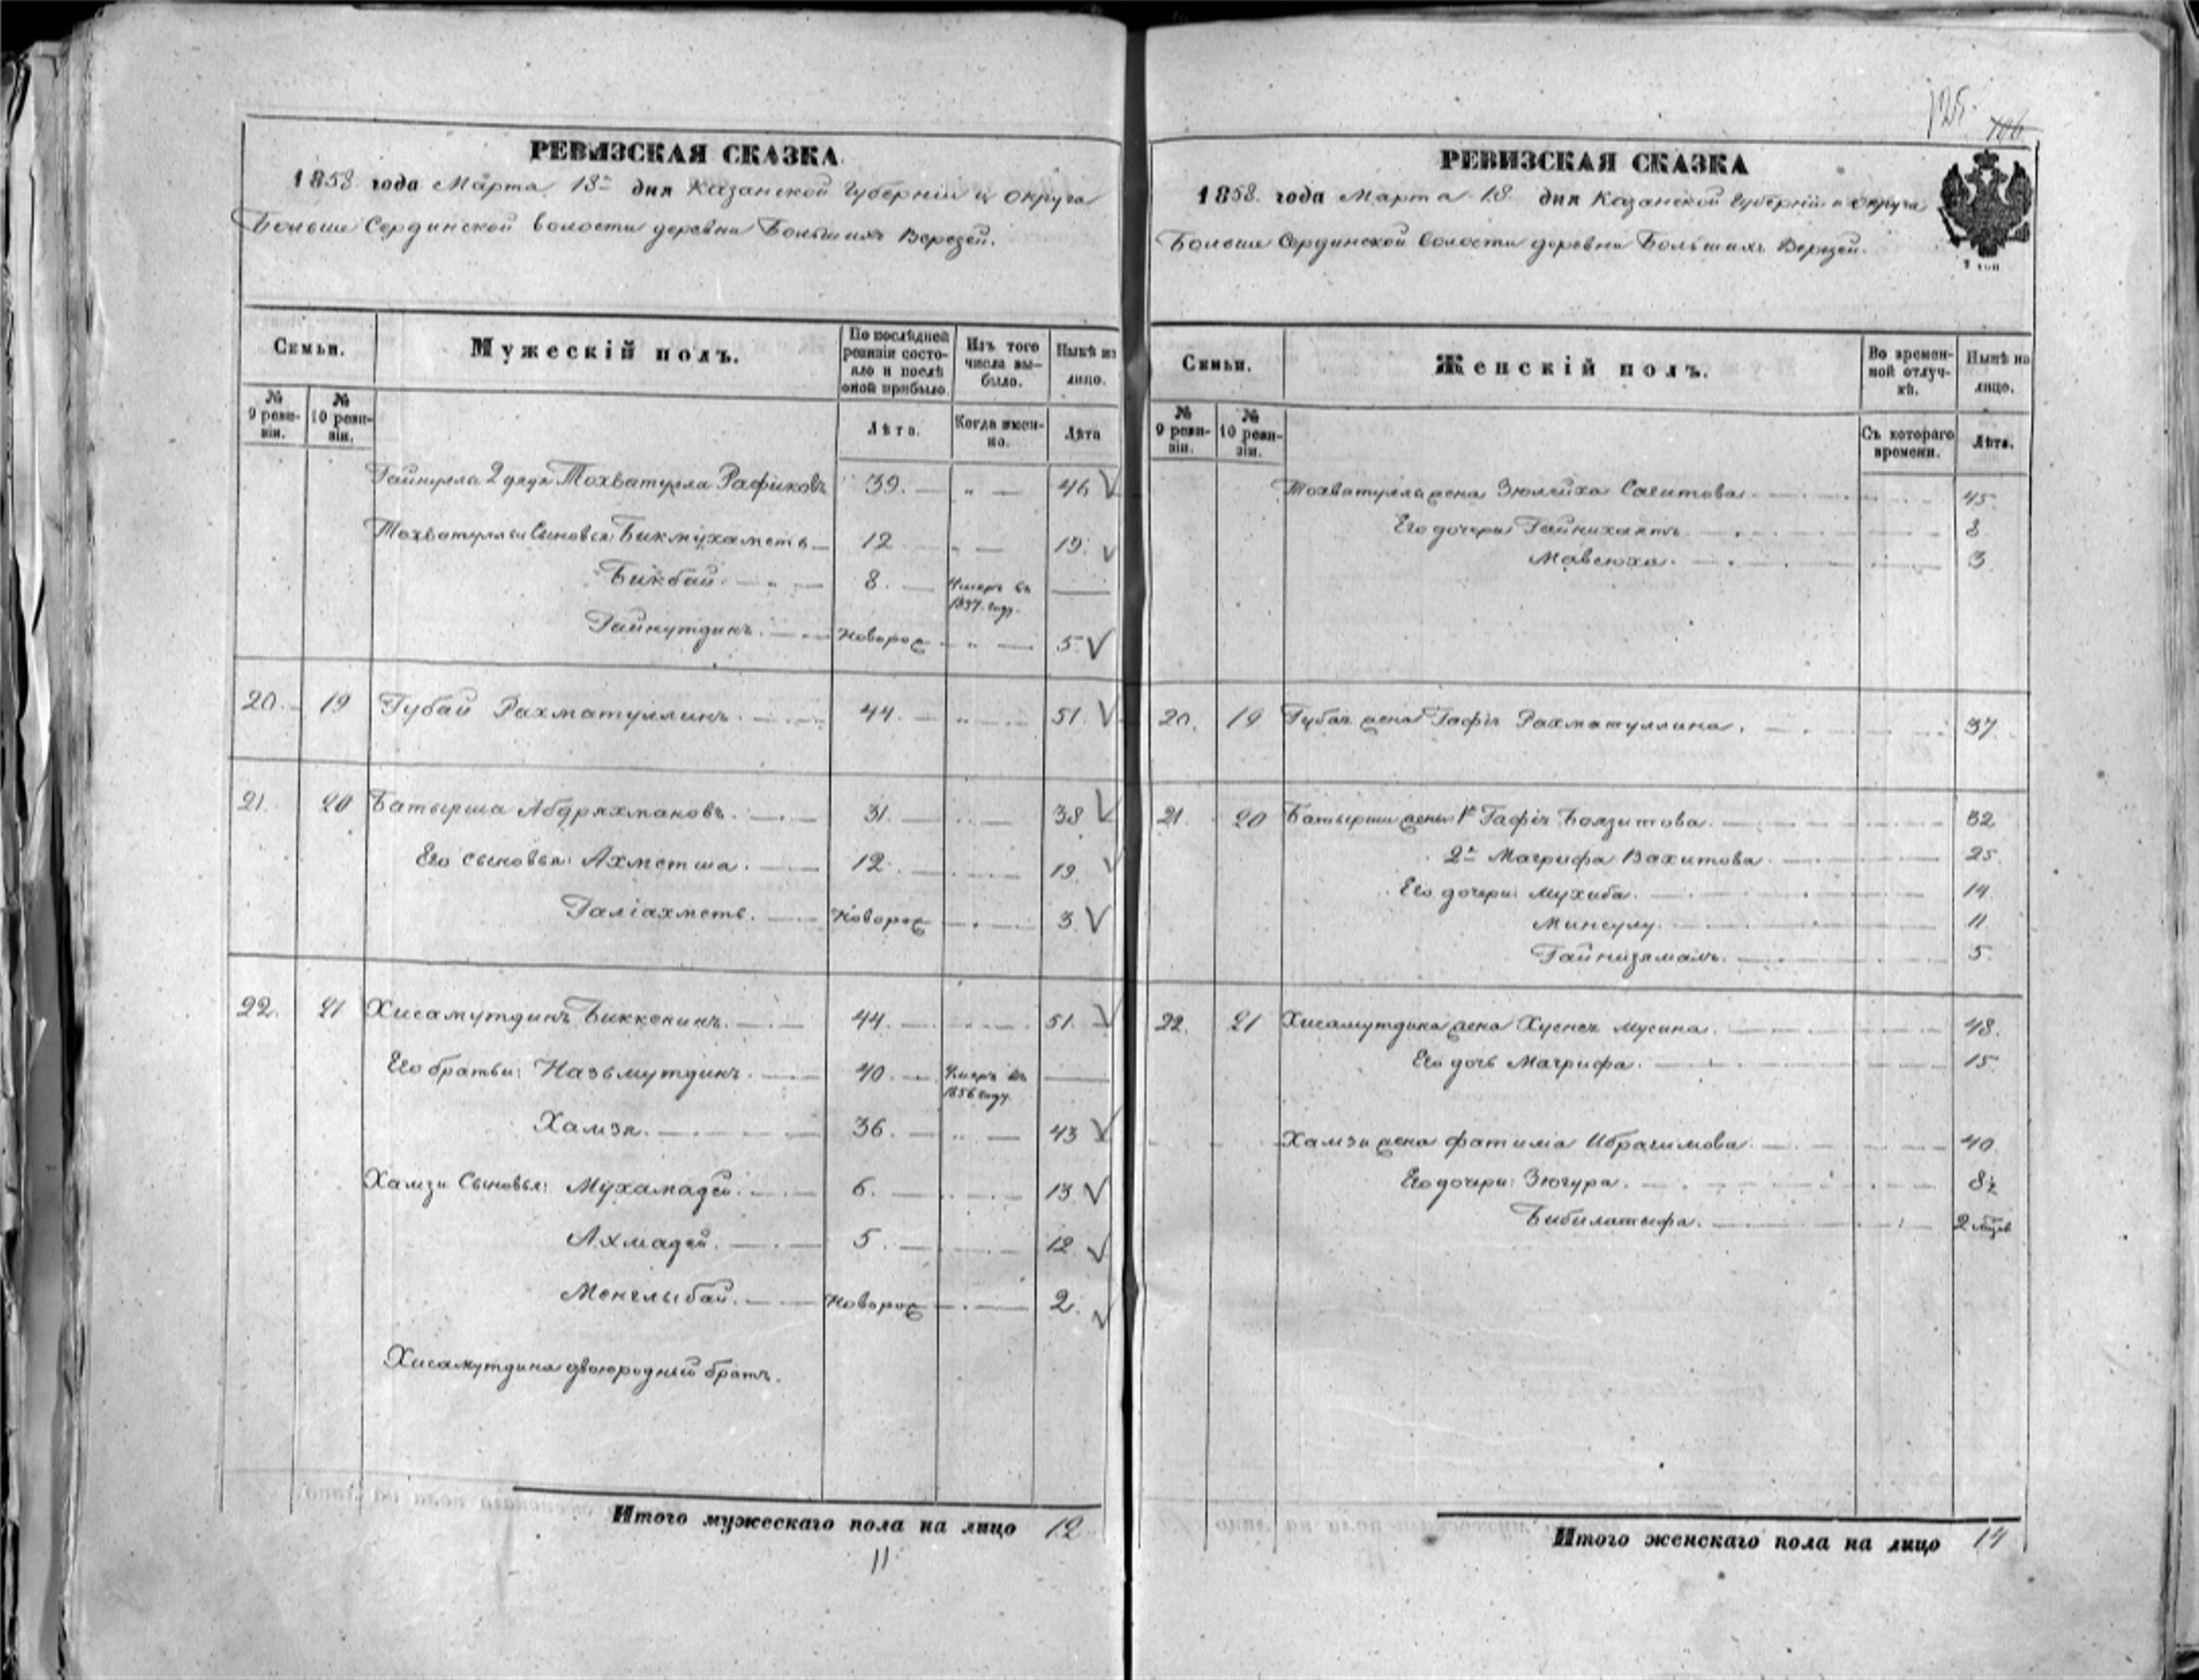 РЕВИЗСКАЯ СКАЗКА
1858 года Марта 18го дня Казанской Губерніи и округа
Больше Сердинской волости деревни Большихъ Верезей.
Семьи. Мужескій полъ. По послѣдней ревизіи состояло и послѣ оной прибыло. Изъ того числа выбыло. Нынѣ на лицо.
№ 9 ревизіи. № 10 ревизіи. Лѣта. Когда именно. Лѣта
Гайнуллы 2 дядя Тохватулла Рафиковъ 39. " 46
Тохватуллы сыновья: Бикмухаметь 12 " 19.
Бикбай. " 8. Умеръ въ 1857. году.
Гайнутдинъ. Новорож " 5
20. 19 Губай Рахматуллинъ. 44. " 51.
21. 20 Батырша Абдряхмановъ. 31. 38
Его сыновья: Ахметша. 12. 19.
Галіахметь. Новорож 3
22. 21 Хисамутдинъ Биккенинъ. 44. 51.
Его братьи: Назьмутдинъ. 40. Умеръ въ 1856 году.
Хамзя. 36. " 43
Хамзи Сыновья: Мухамадей. 6. 13
Ахмадей. 5. 12.
Менглыбай. Новорож 2.
Хисамутдина двоюродный братъ.
Итого мужескаго пола на лицо 12
11
125. 106
РЕВИЗСКАЯ СКАЗКА
1858. года Марта 18 дня Казанской Губерніи и округа
Больше Сердинской волости деревни Большихъ Верезей.
Семьи. Женскій полъ. Во временной отлучкѣ. Нынѣ на лицо.
№ 9 ревизіи. № 10 ревизіи. Съ котораго времени. Лѣта.
Тохватуллы жена Зюлейха Сагитова 45
Его дочери Гайнихаятъ 8
Мавлюха. 3
20. 19 Губая жена Гафія Рахматуллина. 37
21. 20 Батырши жены 1я Гафія Баязитова. 32
2я Магрифа Вахитова. 25
Его дочери: Мухиба. 14
Минсулу. 11
Гайнизямалъ. 5.
22. 21 Хисамутдина жена Хуснея Мусина. 48.
Его дочь Магрифа. 15
Хамзи жена Фатима Ибрагимова 40
Его дочери: Зюгура. 8½
Бибилатыфа. 2 мѣсяц
Итого женскаго пола на лицо 14